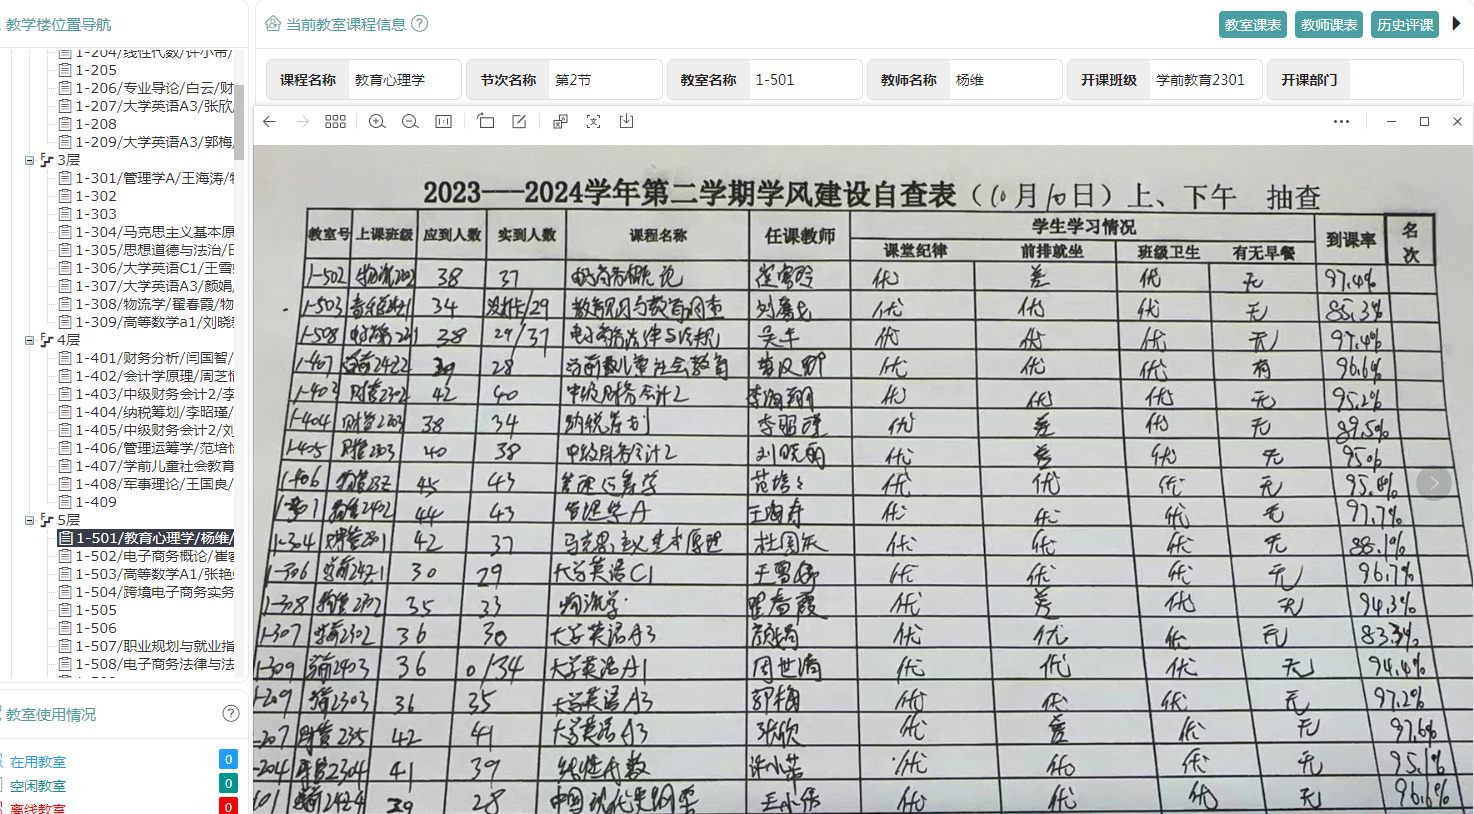 教学楼位置导航
1-204/线性代数/许小芾/
1-205
1-206/专业导论/白云/财
1-207/大学英语A3/张欣
1-208
1-209/大学英语A3/郭梅
3层
1-301/管理学A/王海涛/
1-302
1-303
1-304/马克思主义基本原
1-305/思想道德与法治/
1-306/大学英语C1/王雪
1-307/大学英语A3/颜娟
1-308/物流学/翟春霞/物
1-309/高等数学a1/刘晓
4层
1-401/财务分析/闫国智/
1-402/会计学原理/周芝
1-403/中级财务会计2/李
1-404/纳税筹划/李昭瑾/
1-405/中级财务会计2/刘
1-406/管理运筹学/范培
1-407/学前儿童社会教育
1-408/军事理论/王国良/
1-409
5层
1-501/教育心理学/杨维/
1-502/电子商务概论/崔
1-503/高等数学A1/张艳
1-504/跨境电子商务实务
1-505
1-506
1-507/职业规划与就业指
1-508/电子商务法律与法
教室使用情况
在用教室 0
空闲教室 0
离线教室 0
当前教室课程信息
教室课表 教师课表 历史评课
课程名称 教育心理学 节次名称 第2节 教室名称 1-501 教师名称 杨维 开课班级 学前教育2301 开课部门
2023——2024学年第二学期学风建设自查表（10月10日）上、下午 抽查
教室号 上课班级 应到人数 实到人数 课程名称 任课教师 学生学习情况 到课率 名次
课堂纪律 前排就坐 班级卫生 有无早餐
1-502 38 37 电子商务概论 优 差 优 无 97.4%
1-503 34 /29 优 优 优 无 85.3%
1-508 38 29/37 电子商务法律与法规 优 优 优 无 97.4%
1-407 学前2422 29 28 学前儿童社会教育 优 优 优 有 96.6%
1-403 财管2302 42 40 中级财务会计2 优 优 优 无 95.2%
1-404 财管2303 38 34 纳税筹划 李昭瑾 优 差 优 无 89.5%
1-405 40 38 中级财务会计2 优 差 优 无 95%
1-406 45 43 管理运筹学 优 优 优 无 95.8%
1-301 44 43 管理学A 王海涛 优 优 优 无 97.7%
1-304 42 37 马克思主义基本原理 杜国庆 优 优 优 无 88.1%
1-306 30 29 大学英语C1 优 优 优 无 96.7%
1-308 35 33 物流学 翟春霞 优 差 优 无 94.3%
1-307 学前2302 36 30 大学英语A3 颜娟 优 优 优 无 83.3%
1-309 学前2403 36 0/34 大学英语A1 周世清 优 优 优 无 94.4%
1-209 学前2303 36 35 大学英语A3 郭梅 优 优 优 无 97.2%
-207 财管2305 42 41 大学英语A3 张欣 优 差 优 无 97.6%
-204 2304 41 39 线性代数 许小芾 优 优 优 无 95.1%
101 学前2424 29 28 优 优 优 无 96.6%